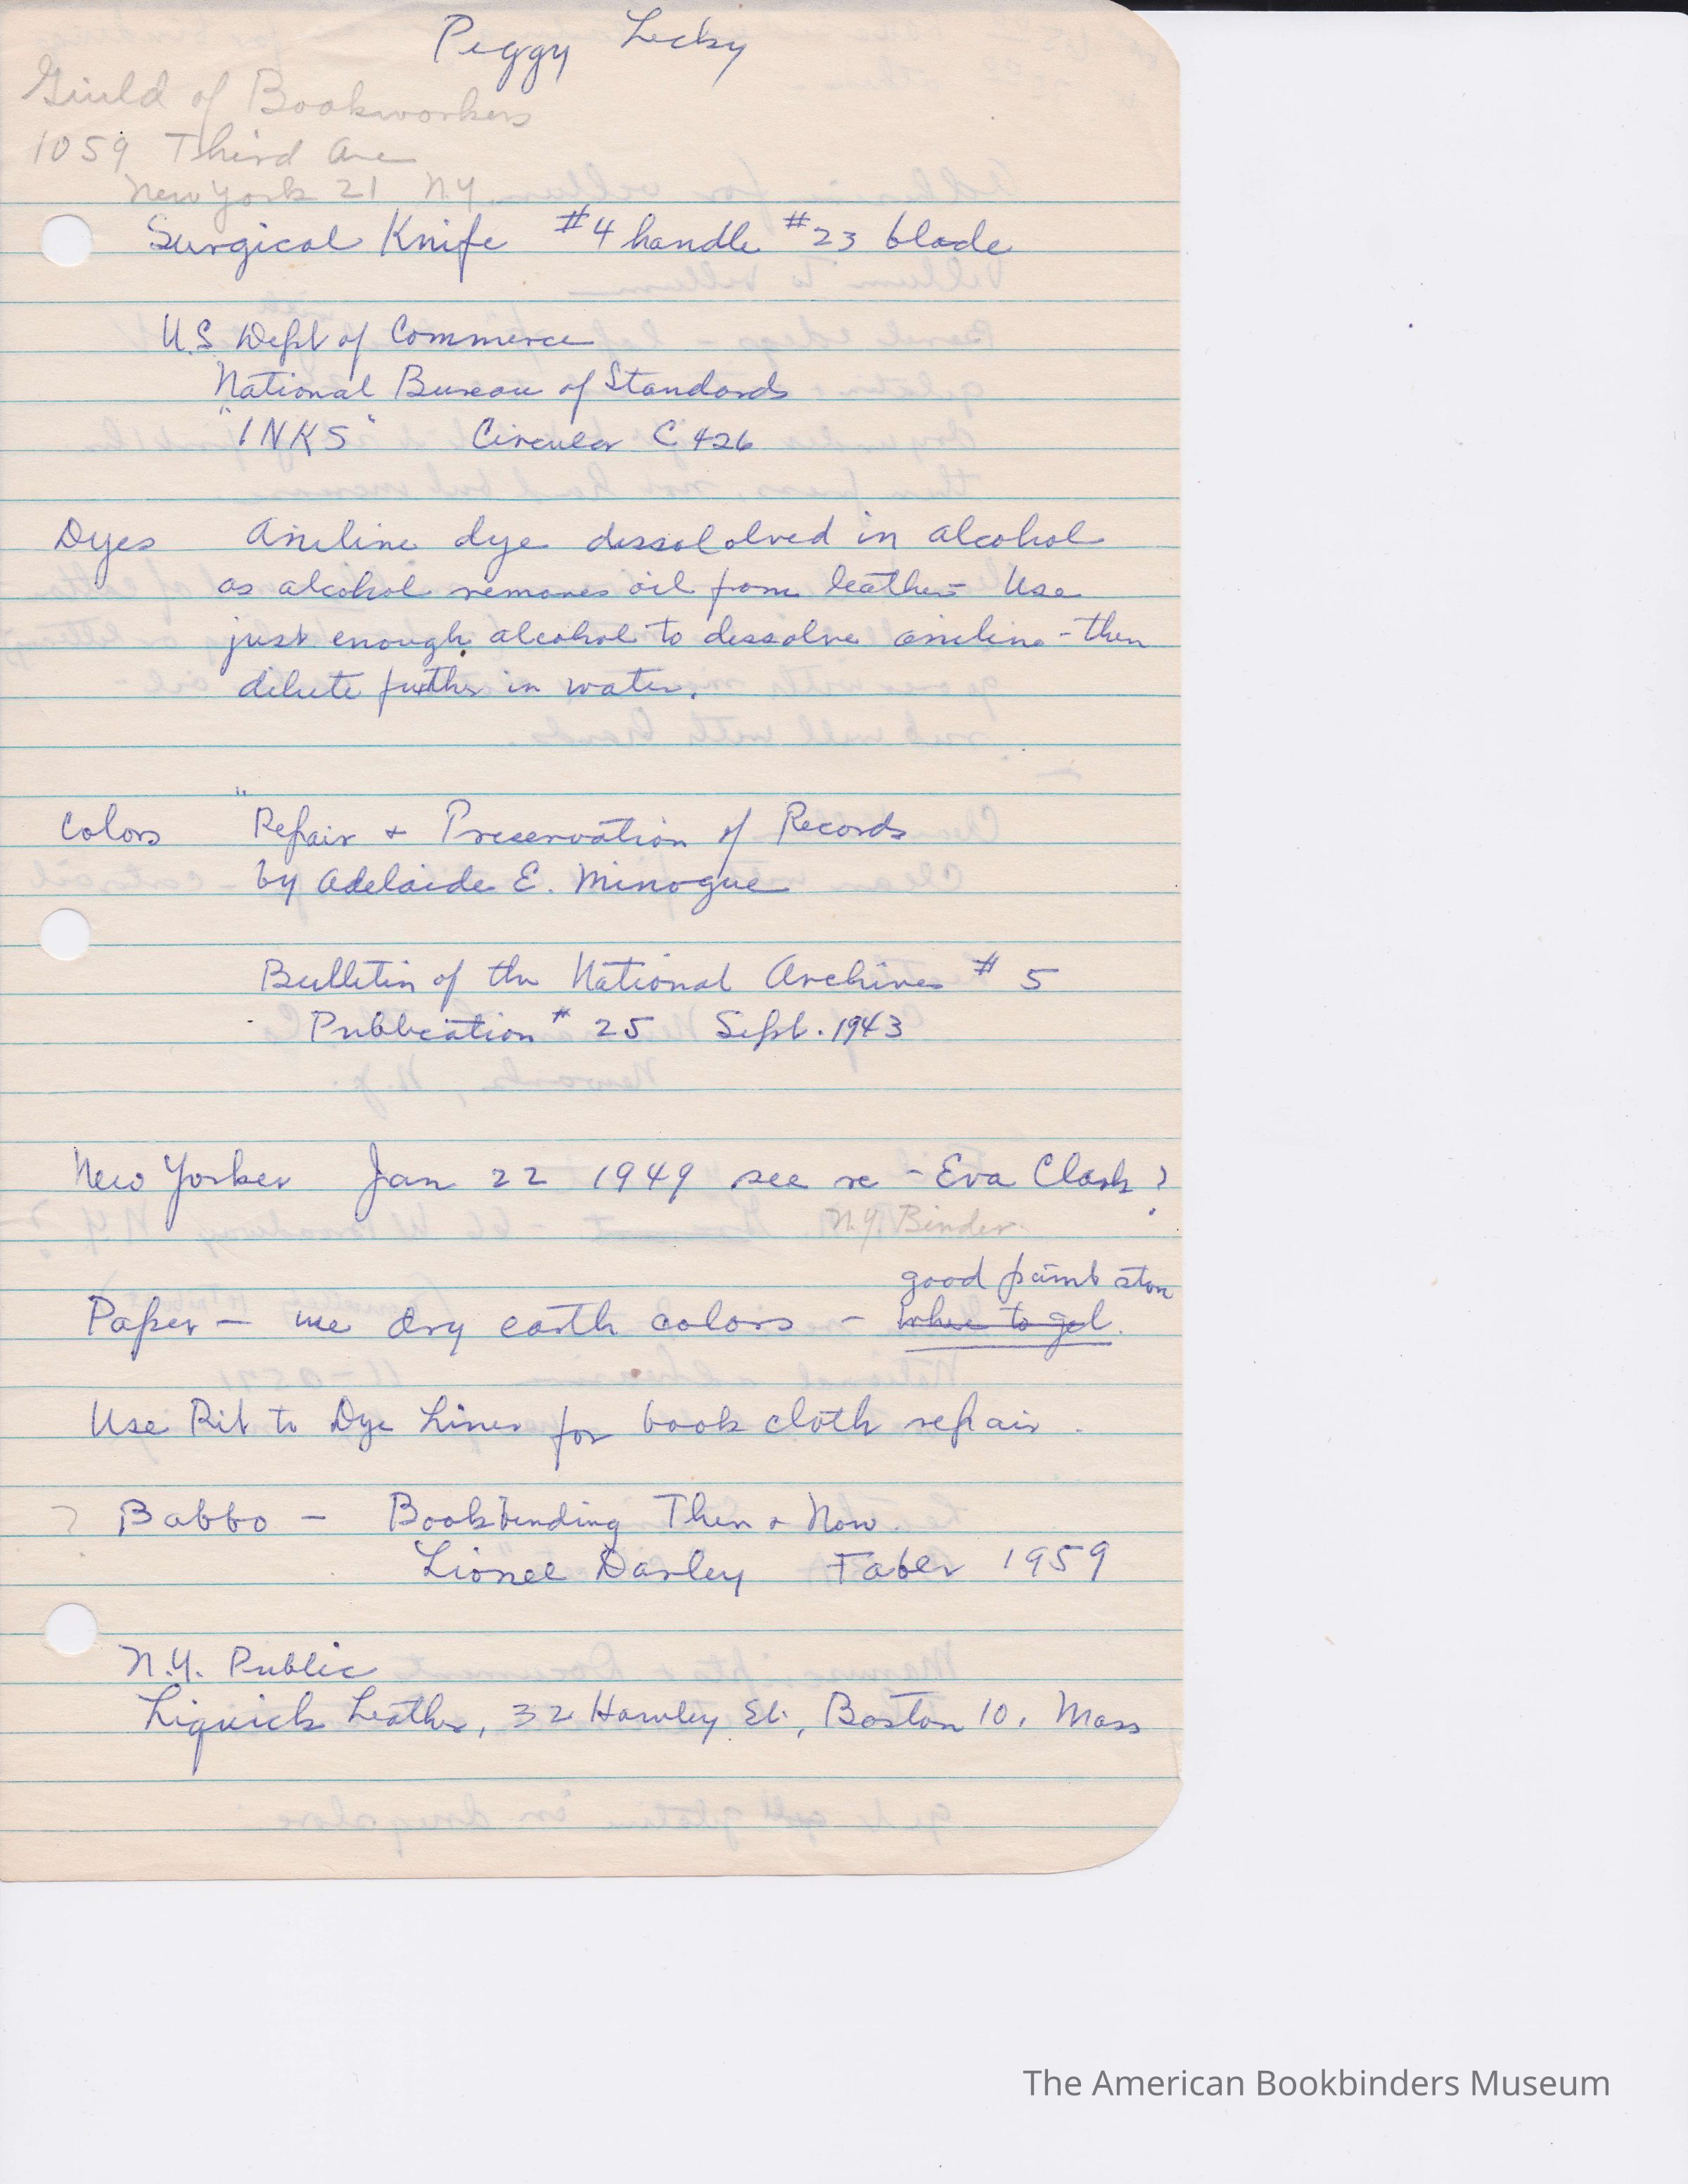 Peggy Lecky
Guild of Bookworkers
1059 Third Ave
New York 21 N.Y.
Surgical Knife #4 handle #23 blade
U.S Dept of Commerce
National Bureau of Standards
"INKS" Circular C 426
Dyes Aniline dye dissololved in alcohol
as alcohol removes oil from leather - Use
just enough alcohol to dissolve aniline - then
dilute further in water.
Colors "Repair + Preservation of Records
by Adelaide E. Minogue
Bulletin of the National Archives # 5
Publication # 25 Sept. 1943
New Yorker Jan 22 1949 see re - Eva Clark?
N.Y. Binder
good paint store
Paper - use dry earth colors - where to get.
Use Rit to Dye Linen for book cloth repair.
? Babbo - Bookbinding Then + Now
Lionel Darley Faber 1959
N.Y. Public
Liquick Leather, 32 Hawley St., Boston 10, Mass
The American Bookbinders Museum